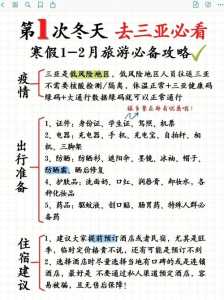 第1次冬天 去三亚必看
寒假1-2月旅游必备攻略
疫情
三亚是低风险地区, 低风险地区人员往返三亚
不需要核酸检测/隔离, 体温正常+三亚健康码
绿码+大通行数据绿码就可以正常通行
出行准备
1、证件: 身份证, 学生证, 驾照, 机票
2、电器: 充电器, 手机, 充电宝, 自拍杆, 相
机, 三脚架
3、防晒: 防晒衫, 遮阳伞, 墨镜, 冰袖, 帽子,
防晒霜, 晒后修复
4、护肤品: 洗面奶, 口红, 润唇膏, 卸妆水, 各
种化妆品
5、药品: 驱蚊液, 创口贴, 肠胃药, 特殊人群必
备药
住宿建议
1、建议大家提前预订酒店或者民宿, 尤其是旺
季, 临时定价格贵不说, 还有可能是预订不到
2、选择酒店时尽量选择当地有口碑的或是连锁
酒店, 最好是 不要通过私人渠道预定酒店, 容
易被骗, 且无售后保障!